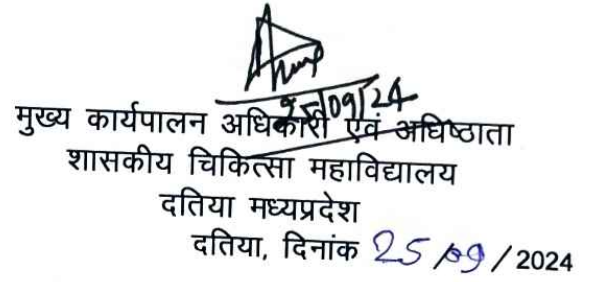 25/09/24
मुख्य कार्यपालन अधिकारी एवं अधिष्ठाता
शासकीय चिकित्सा महाविद्यालय
दतिया मध्यप्रदेश
दतिया, दिनांक 25/09/2024